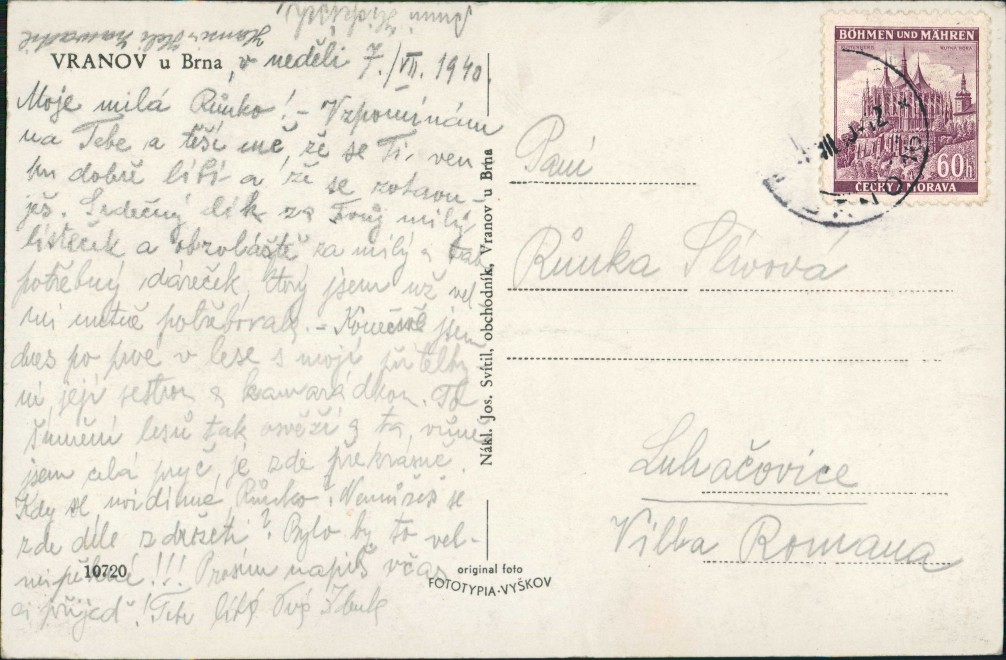 VRANOV u Brna, v neděli 7./VII. 1940.
Moje milá Růnko! - Vzpomínám
na Tebe a těší mě, že se Ti ven-
ku dobře líbí a že se zotavu-
ješ. Srdečný dík za Tvůj milý
lísteček a obzvláště za milý a tak
potřebný dáreček, který jsem už vel-
mi nutně potřebovala. - Konečně jsem
dnes po prvé v lese s mojí přítelky-
ní, její sestrou a kamarádkou. To
šumění lesů tak osvěží a ta vůně
jsem celá pryč, je zde překrásně.
Kdy se uvidíme, Růnko? Nemůžeš se
zde déle zdržeti? Bylo by to vel-
mi pěkné!!! Prosím napiš včas
a přijeď! Tebe líbá Tvá
10720
Nákl. Jos. Svítil, obchodník, Vranov u Brna
original foto
FOTOTYPIA-VYŠKOV
BÖHMEN UND MÄHREN
60h
ČECHY A MORAVA
Paní
Růnka Slívová
Luhačovice
Villa Romana